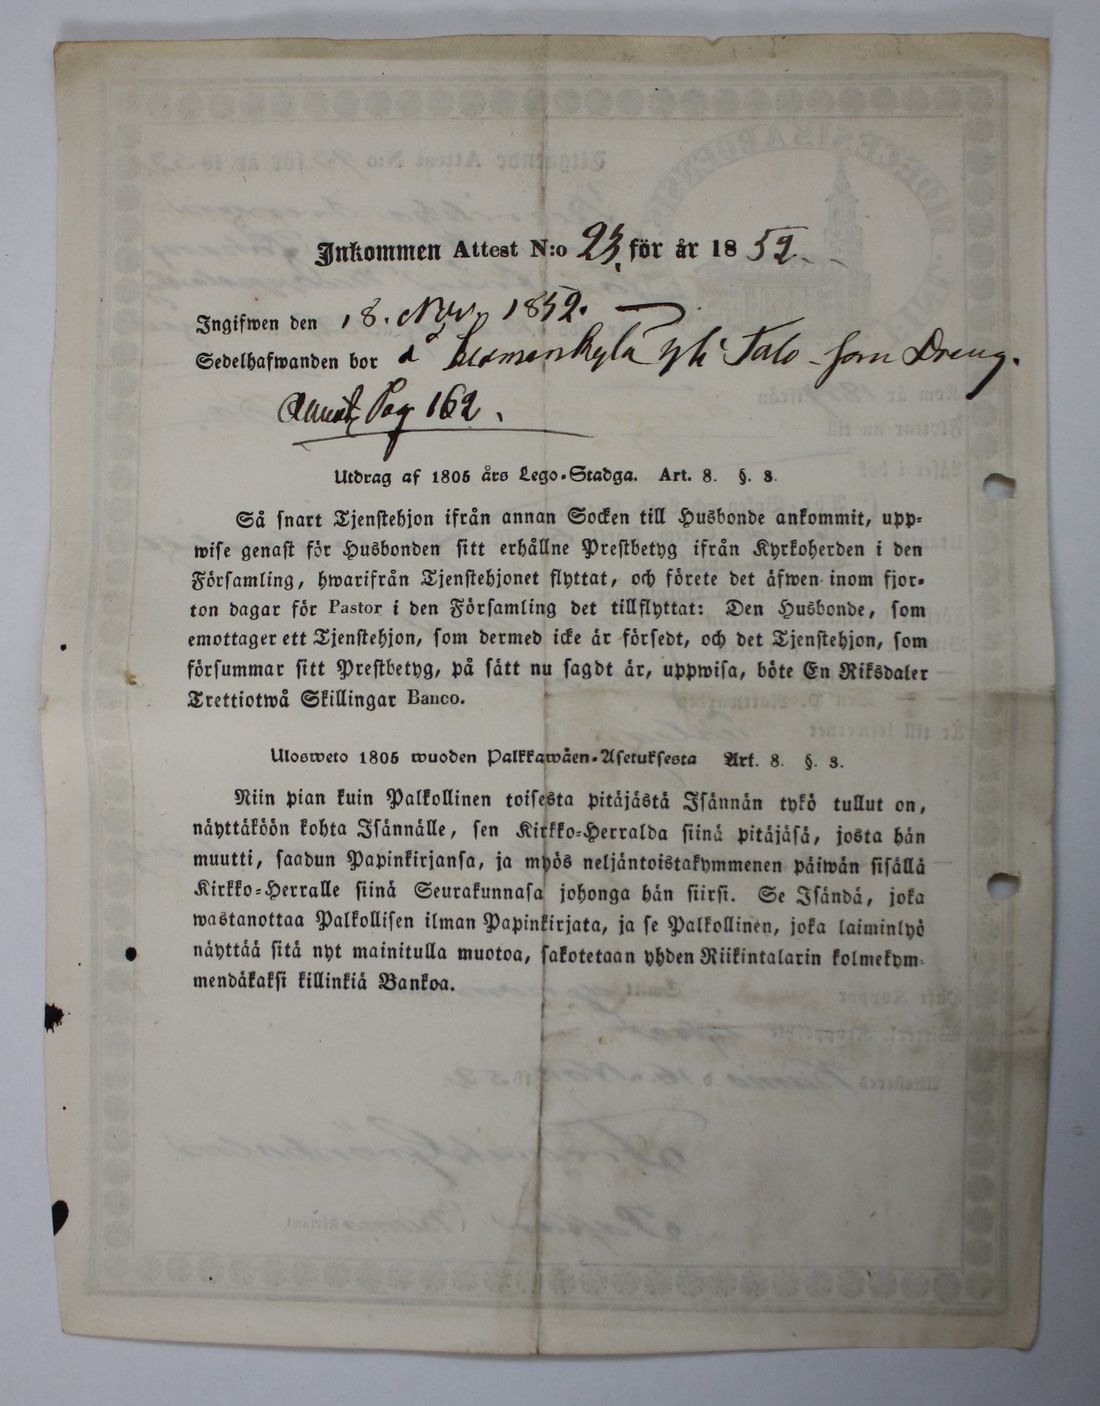 Inkommen Attest N:o 23, för år 1852.
Ingifwen den 18. Nov. 1852.
Sedelhafwanden bor å Suomenkylä yli Talo som Dreng.
Pag 162.
Utdrag af 1805 års Lego-Stadga. Art. 8. §. 3.
Så snart Tjenstehjon ifrån annan Socken till Husbonde ankommit, upp-
wise genast för Husbonden sitt erhållne Prestbetyg ifrån Kyrkoherden i den
Församling, hwarifrån Tjenstehjonet flyttat, och förete det äfwen inom fjor-
ton dagar för Pastor i den Församling det tillflyttat: Den Husbonde, som
emottager ett Tjenstehjon, som dermed icke är försedt, och det Tjenstehjon, som
försummar sitt Prestbetyg, på sätt nu sagdt är, uppwisa, böte En Riksdaler
Trettiotwå Skillingar Banco.
Ulosweto 1805 wuoden Palkkawäen-Asetuksesta Art. 8. §. 3.
Niin pian kuin Palkollinen toisesta pitäjästä Isännän tykö tullut on,
näyttäköön kohta Isännälle, sen Kirkko-Herralda siinä pitäjäsä, josta hän
muutti, saadun Papinkirjansa, ja myös neljäntoistakymmenen päiwän sisällä
Kirkko-Herralle siinä Seurakunnasa johonga hän siirsi. Se Isändä, joka
wastanottaa Palkollisen ilman Papinkirjata, ja se Palkollinen, joka laiminlyö
näyttää sitä nyt mainitulla muotoa, sakotetaan yhden Riikintalarin kolmekym-
mendäkaksi killinkiä Bankoa.